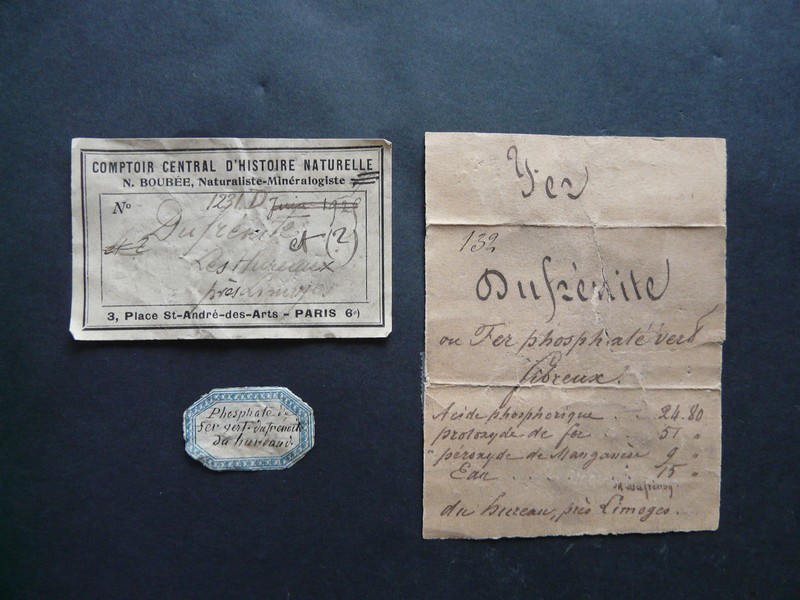 COMPTOIR CENTRAL D'HISTOIRE NATURELLE
N. BOUBÉE, Naturaliste-Minéralogiste
Nº 1231.D Juin 192
Dufrénite
et 2 et (2)
Les Hureaux
près Limoges
3, Place St-André-des-Arts - PARIS 6e)
Phosphate de
fer vert dufrénite
du hureaux
Fer
132
Dufrénite
ou Fer phosphaté vert
fibreux.
Acide phosphorique . . 24.80
protoxyde de fer . . 51 "
peroxyde de Manganèse 9 "
Eau . . . . . . 15 "
M Dufrénoy
du hureau, près Limoges.